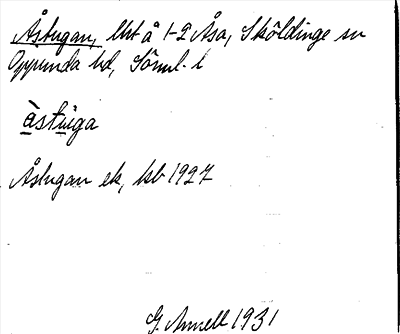 Åstugan, lht å 1-2 Åsa, Sköldinge sn
Oppunda hd, Söml. l
åstuiga
Åstugan ek, hsb 1927
G. Annell 1931